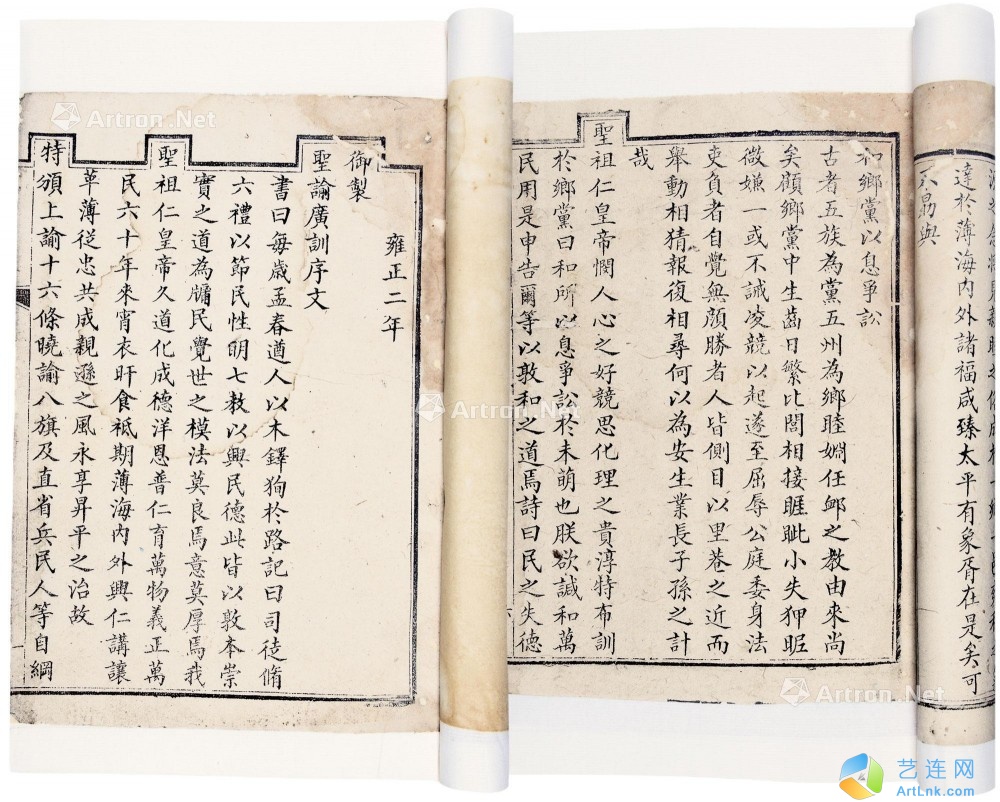 達於薄海内外諸福咸臻太平有象胥在是矣可
不勗與
和鄉黨以息爭訟
古者五族為黨五州為鄉睦婣任卹之教由來尚
矣顧鄉黨中生齒日繁比閭相接睚眦小失狎昵
微嫌一或不誡凌競以起遂至屈辱公庭委身法
吏負者自覺無顔勝者人皆側目以里巷之近而
舉動相猜報復相尋何以為安生業長子孫之計
哉
聖祖仁皇帝憫人心之好競思化理之貴淳特布訓
於鄉黨曰和所以息爭訟於未萌也朕欲諴和萬
民用是申告爾等以敦和之道焉詩曰民之失德
雍正二年
御製
聖諭廣訓序文
書曰每歲孟春遒人以木鐸狥於路記曰司徒脩
六禮以節民性明七教以興民德此皆以敦本崇
實之道為牖民覺世之模法莫良焉意莫厚焉我
聖祖仁皇帝久道化成德洋恩普仁育萬物義正萬
民六十年來宵衣旰食祗期薄海内外興仁講讓
革薄從忠共成親遜之風永享昇平之治故
特頒上諭十六條曉諭八旗及直省兵民人等自綱
Artron.Net
Artron.Net
Artron.Net
Artron.Net
艺连网
ArtLnk.com